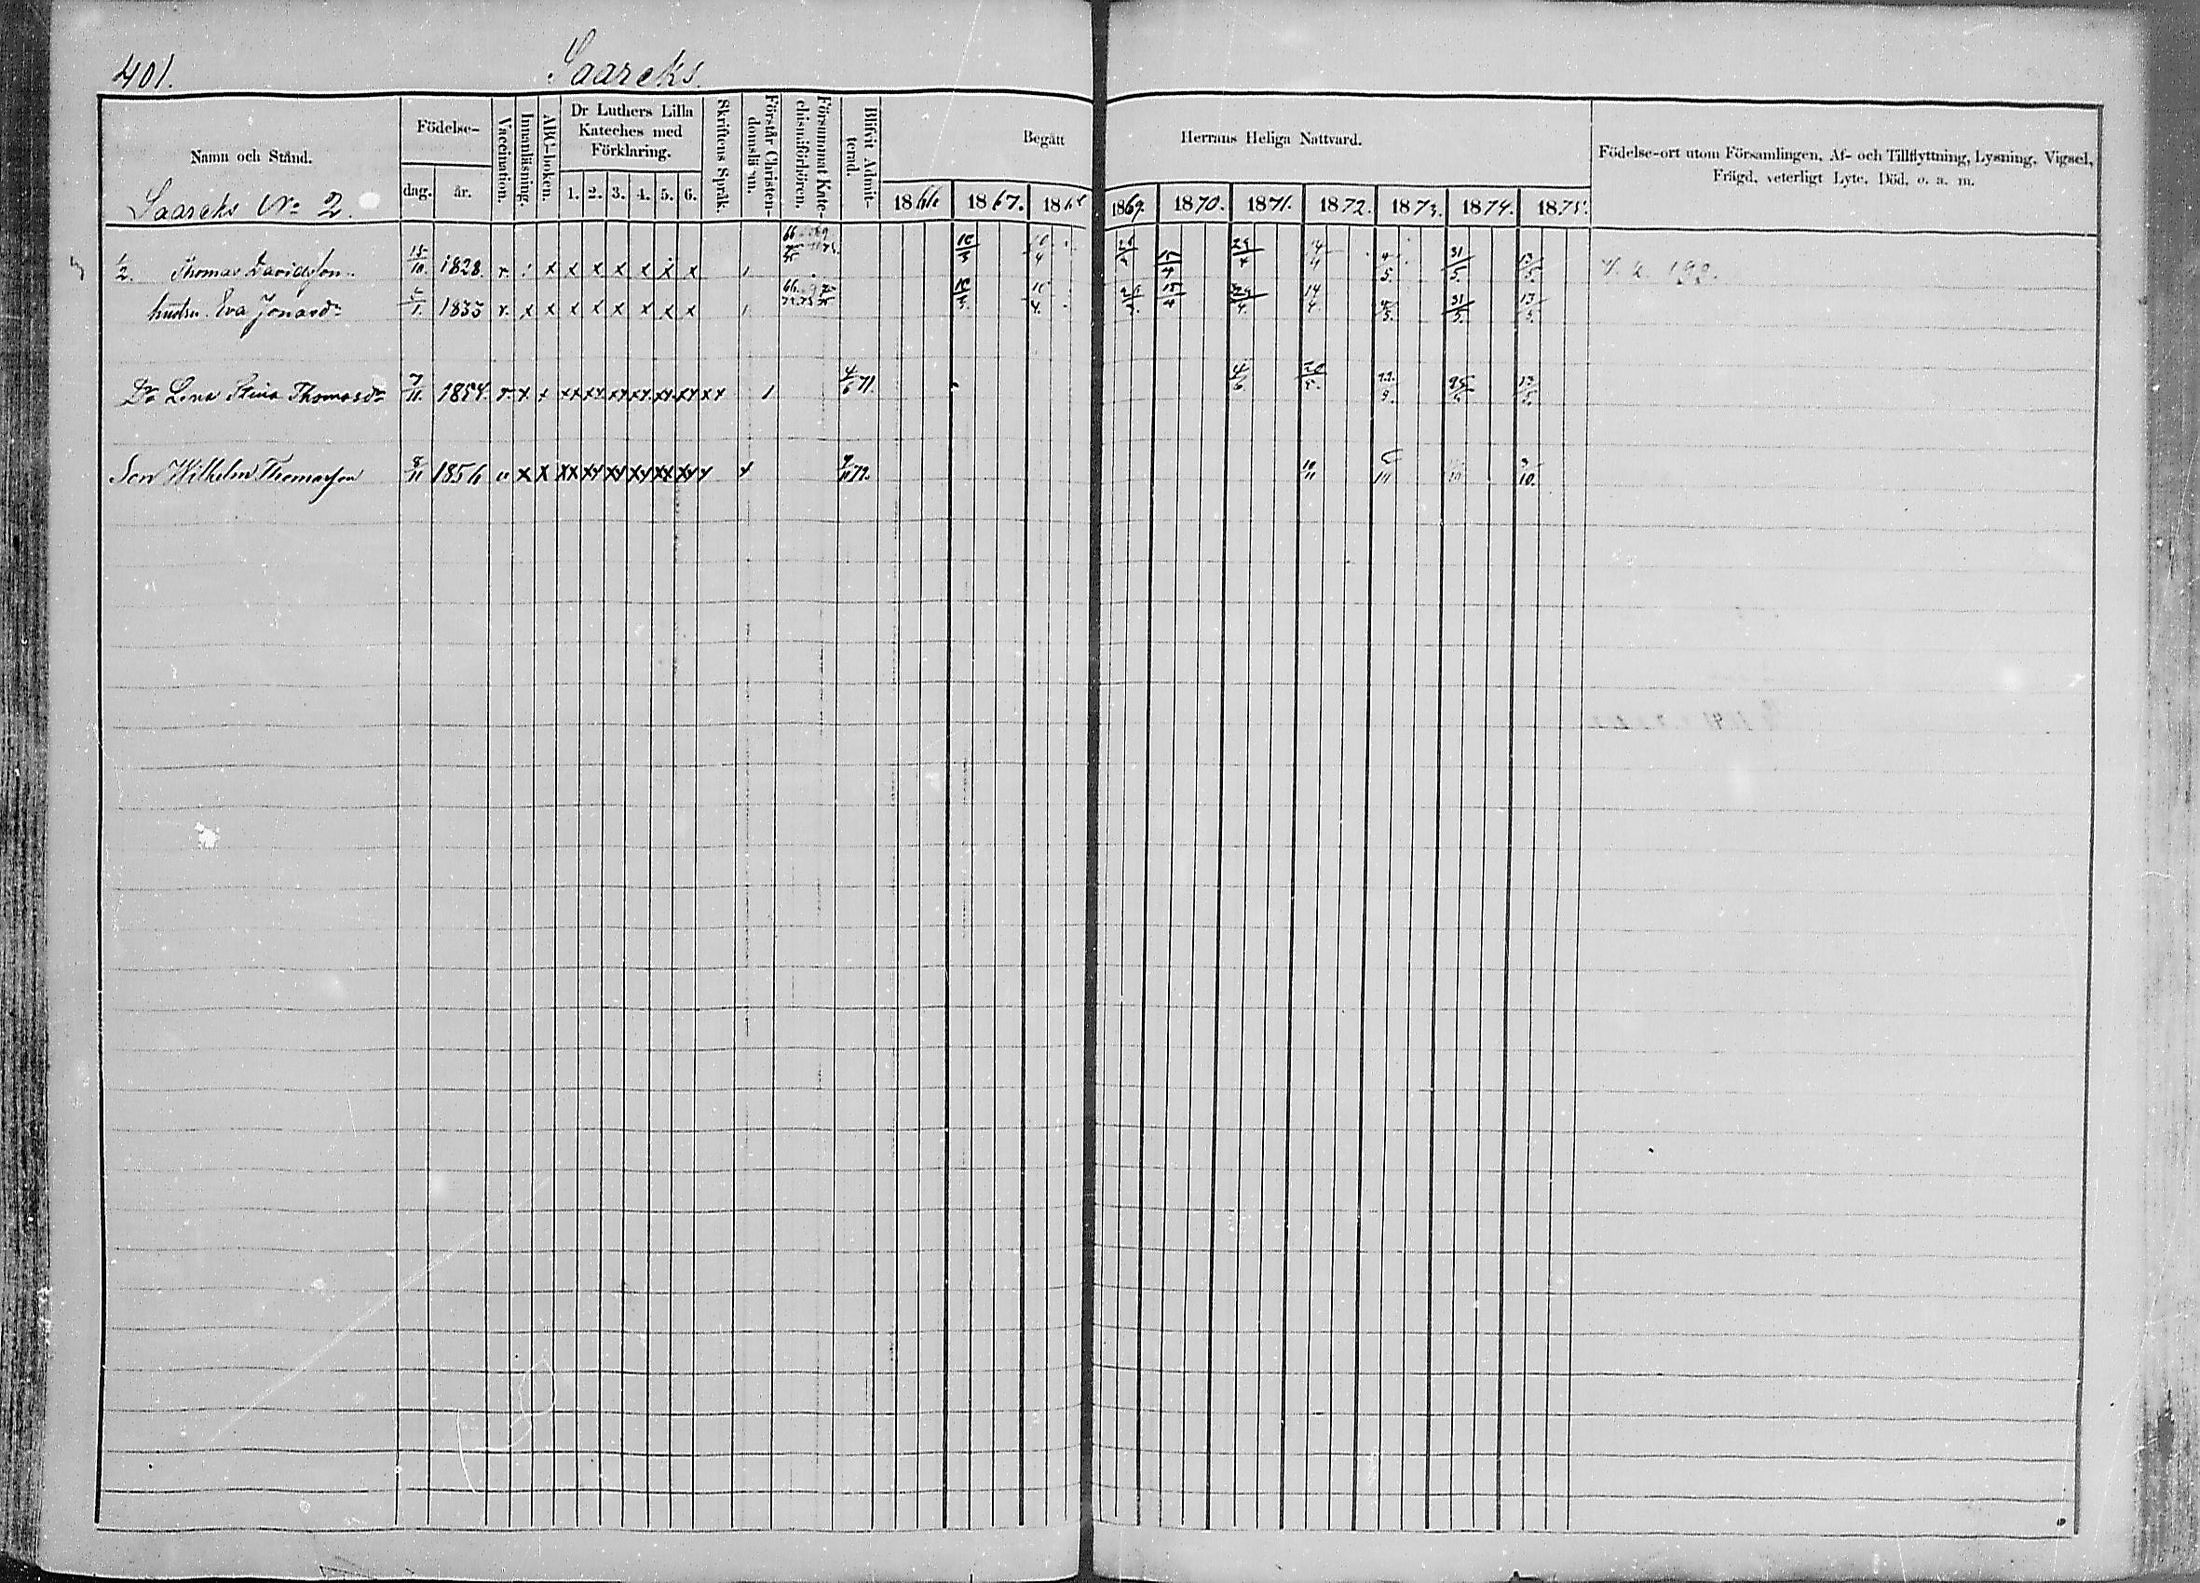 401.
Saareks.
Namn och Stånd.
Födelse-
dag.
år.
Vaccination.
Innanläsning.
ABC-boken.
Dr Luthers Lilla
Kateches med
Förklaring.
1. 2. 3. 4. 5. 6.
Skriftens Språk.
Förstår Christen-
domslä n.
Försummat Kate-
chismiförhören.
Blifvit Admit-
terad.
Begått Herrans Heliga Nattvard.
1866. 1867. 1868 1869. 1870. 1871. 1872. 1873. 1874. 1875.
Födelse-ort utom Församlingen, Af- och Tillflyttning, Lysning, Vigsel,
Frägd, veterligt Lyte, Död, o. a. m.
Saareks No 2.
1/2. Thomas Davidsson. 15/10. 1828. v. x x x x x x x 10/3 29/4 4/5. 31/5. 13/5.
hustru Eva Jonasdr 1833 v. x x x x x x x x 10/3. 10/4. 15/4 29/4. 14/4. 4/5. 31/5. 13/5.
Dr Lena Stina Thomasdr 7/11. 1854. v. x x xx xx xx xx xx xx xx 1 4/6 71. 4/6. 20/5. 22/9. 13/5.
Son Wilhelm Thomasson 8/11 1856 v x x xx xx xx xx xx xx x x 72. 10/11 10.